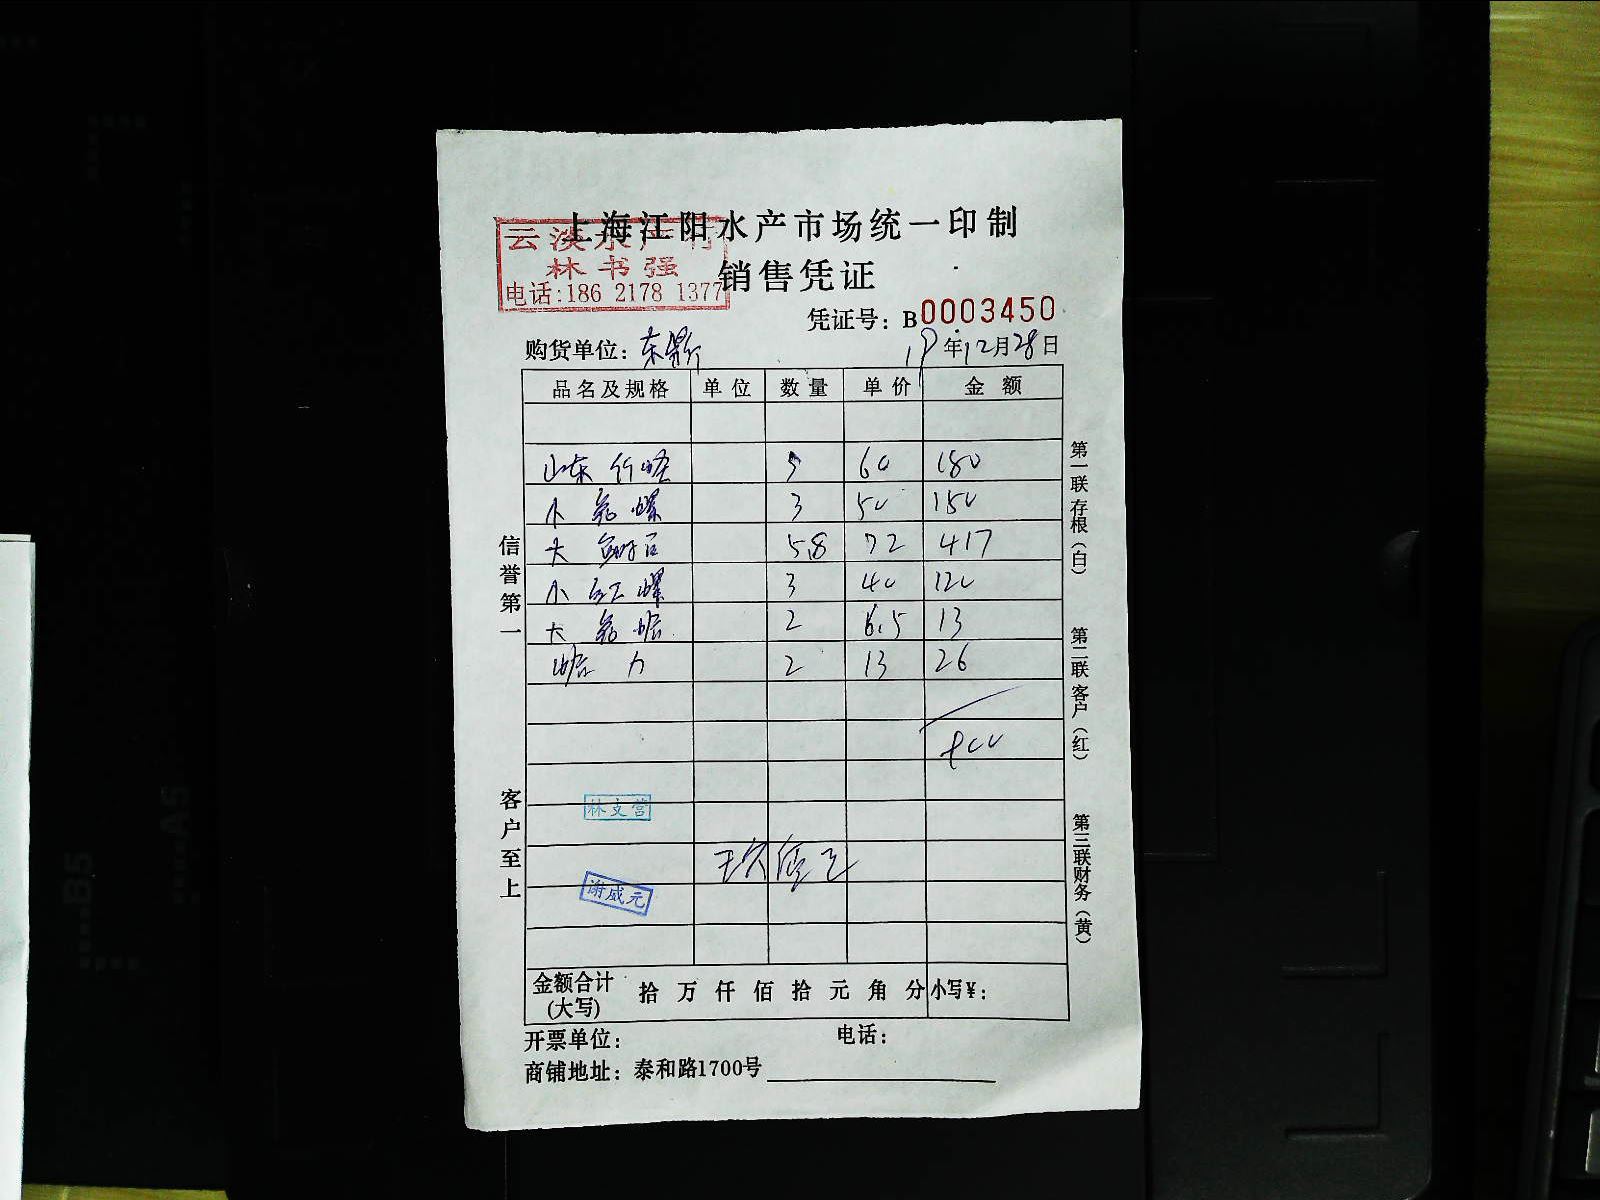 上海江阳水产市场统一印制
云淡水产行
林书强
电话:186 2178 1377
销售凭证
凭证号: B0003450
购货单位:
19年12月28日
品名及规格 单位 数量 单价 金额
山东竹蛏 3 60 180
小 螺 3 50 150
大 5.8 72 417
小红螺 3 40 120
大 2 6.5 13
2 13 26
林支营
谢威元
金额合计(大写) 拾万仟佰拾元角分 小写¥:
开票单位: 电话:
商铺地址: 泰和路1700号
信誉第一
客户至上
第一联存根(白)
第二联客户(红)
第三联财务(黄)
B5
A5